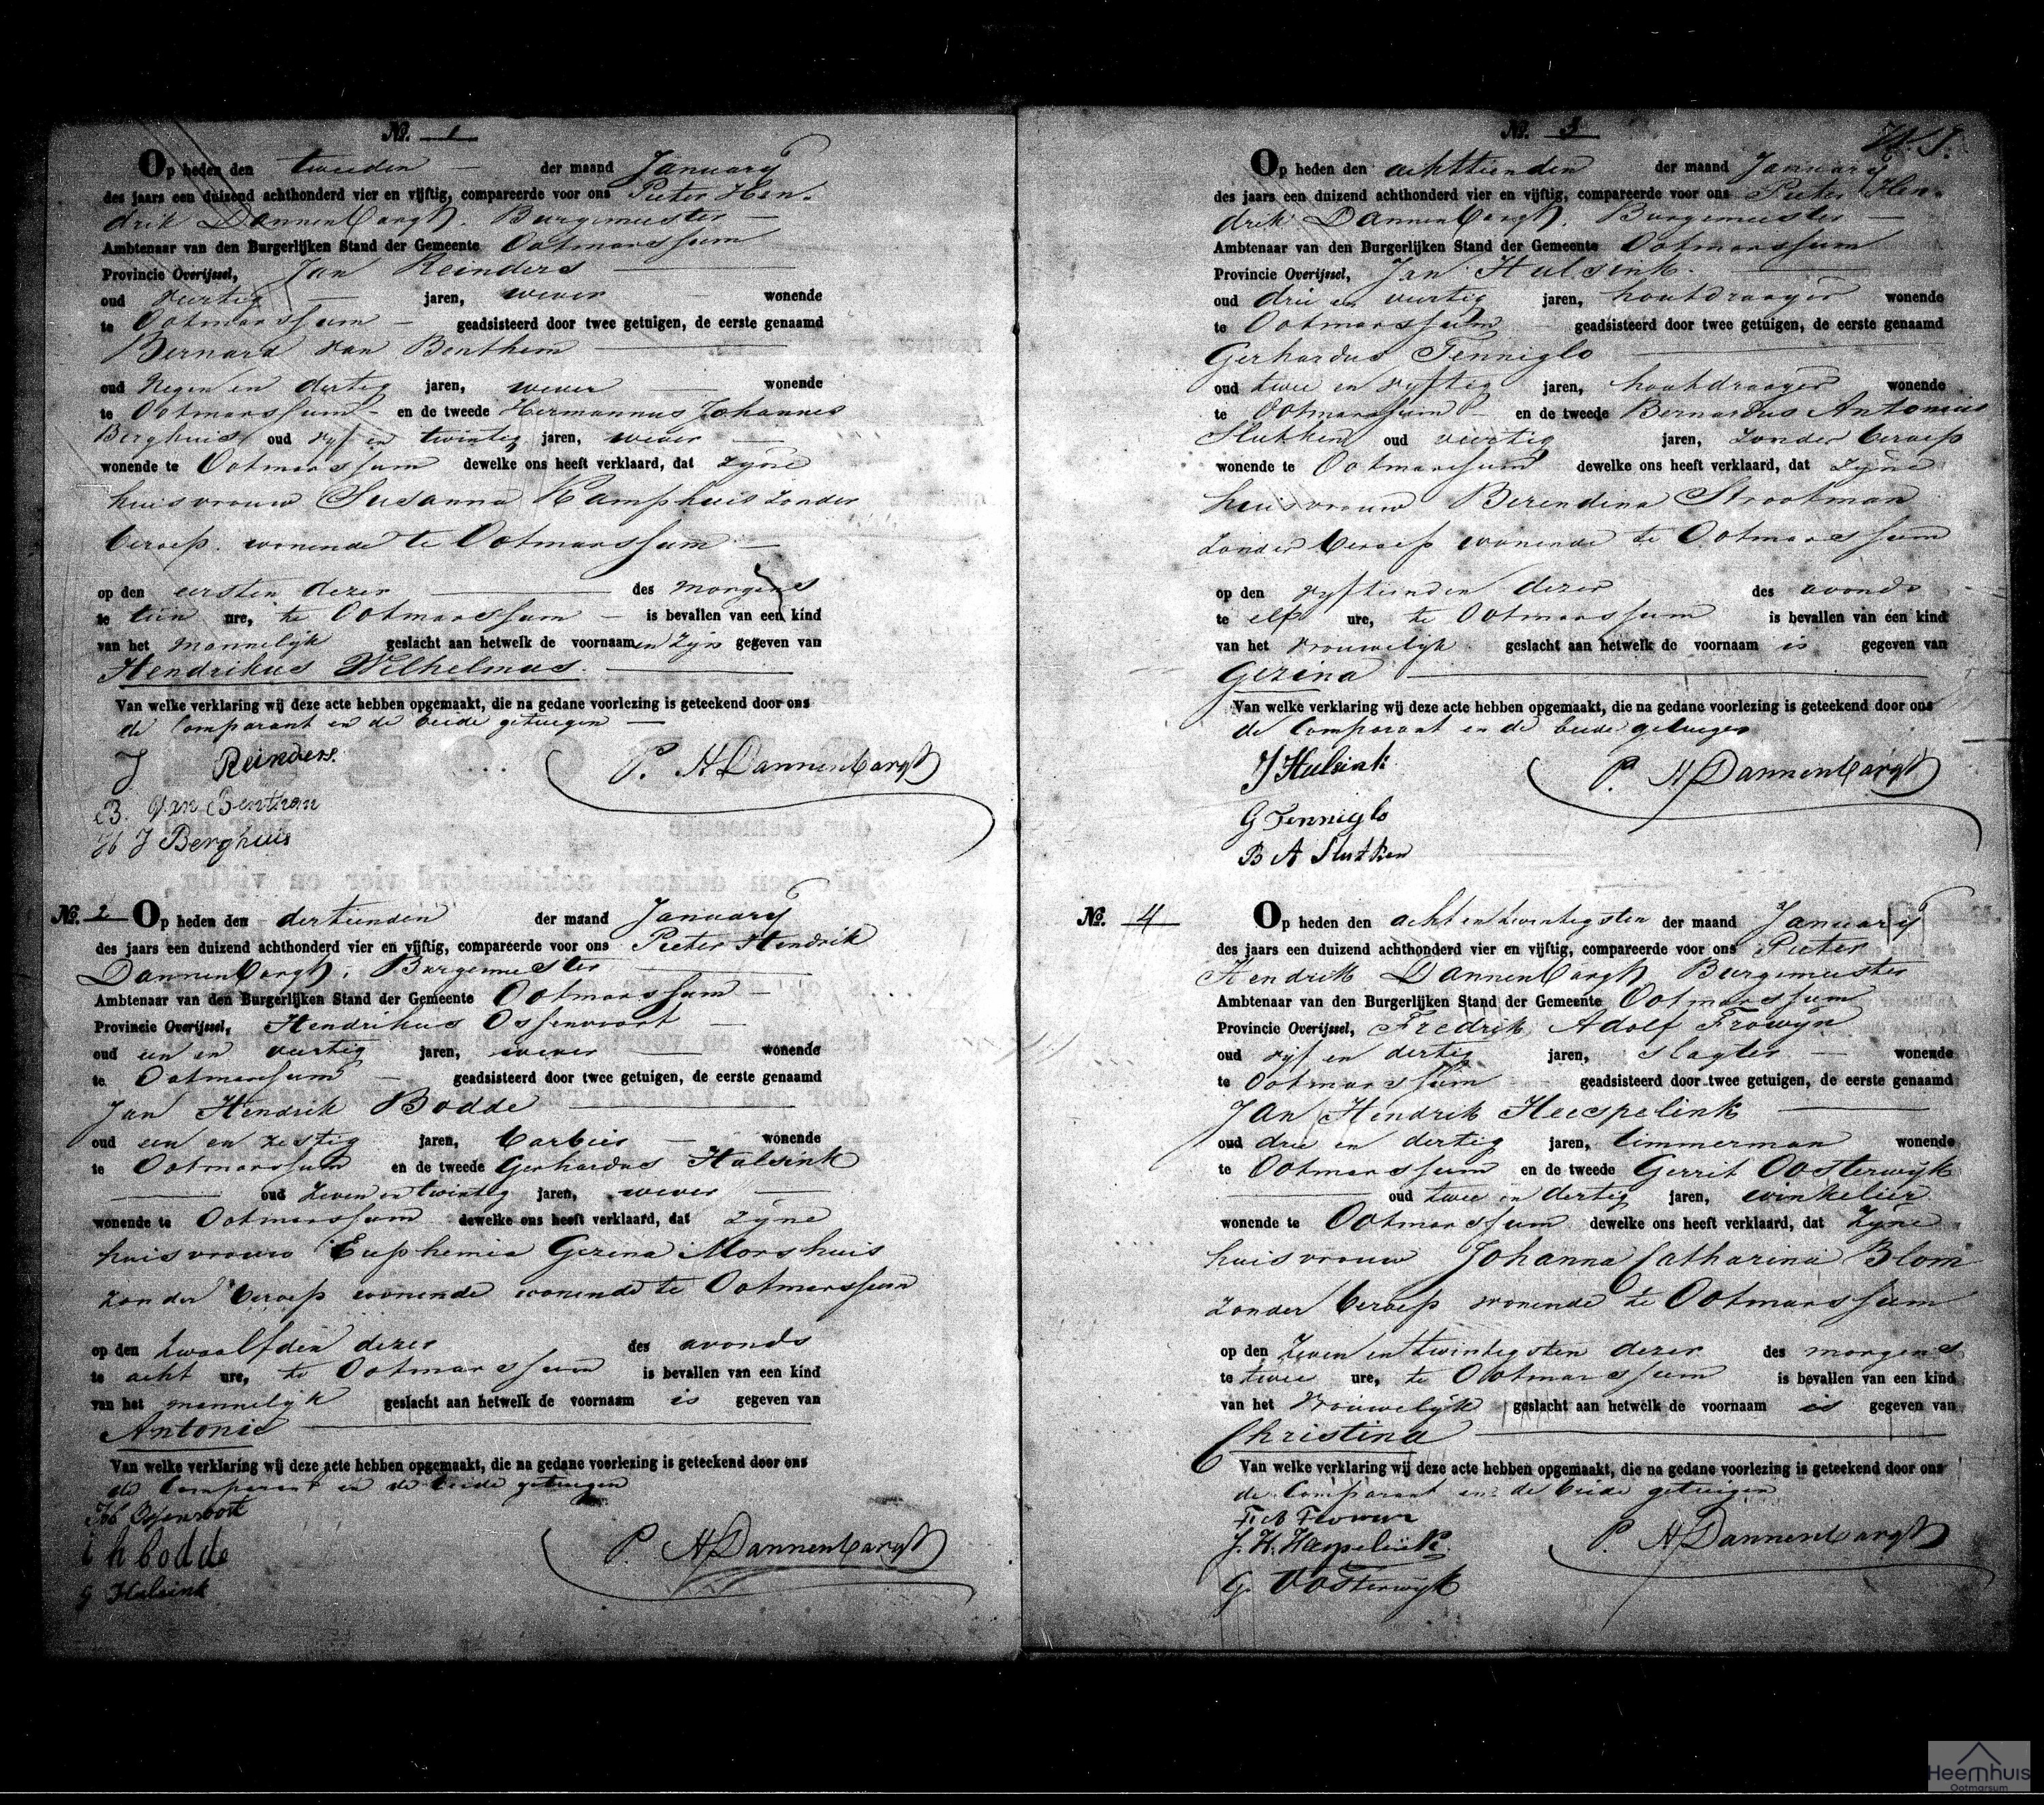 No. 1
Op heden den tweeden der maand January
des jaars een duizend achthonderd vier en vijftig, compareerde voor ons Pieter Hen-
drik Dannenbargh, Burgemeester
Ambtenaar van den Burgerlijken Stand der Gemeente Ootmarssum
Provincie Overijssel, Jan Reinders
oud veertig jaren, wever wonende
te Ootmarssum geadsisteerd door twee getuigen, de eerste genaamd
Bernard van Benthem
oud Negen en dertig jaren, wever wonende
te Ootmarssum en de tweede Hermannus Johannes
Berghuis oud vyf en twintig jaren, wever
wonende te Ootmarssum dewelke ons heeft verklaard, dat zyne
huisvrouw Susanna Kamphuis zonder
beroep wonende te Ootmarssum
op den eersten dezer des morgens
te tien ure, te Ootmarssum is bevallen van een kind
van het mannelyk geslacht aan hetwelk de voornaamen zyn gegeven van
Hendrikus Wilhelmus
Van welke verklaring wij deze acte hebben opgemaakt, die na gedane voorlezing is geteekend door ons
de Comparant en de beide getuigen
J Reinders. P. H Dannenbargh
B. van Benthem
H J Berghuis
No. 2 Op heden den dertienden der maand January
des jaars een duizend achthonderd vier en vijftig, compareerde voor ons Pieter Hendrik
Dannenbargh, Burgemeester
Ambtenaar van den Burgerlijken Stand der Gemeente Ootmarssum
Provincie Overijssel, Hendrikus Ossenvoort
oud een en veertig jaren, wever wonende
te Ootmarssum geadsisteerd door twee getuigen, de eerste genaamd
Jan Hendrik Bodde
oud een en zestig jaren, barbier wonende
te Ootmarssum en de tweede Gerhardus Hulsink
oud zeven en twintig jaren, wever
wonende te Ootmarssum dewelke ons heeft verklaard, dat zyne
huisvrouw Euphemia Gezina Morshuis
zonder beroep wonende wonende te Ootmarssum
op den twaalfden dezer des avonds
te acht ure, te Ootmarssum is bevallen van een kind
van het mannelyk geslacht aan hetwelk de voornaam is gegeven van
Antonie
Van welke verklaring wij deze acte hebben opgemaakt, die na gedane voorlezing is geteekend door ons
de Comparant en de beide getuigen
Ossenvoort
i h bodde P. H Dannenbargh
G Hulsink
No. 3
Op heden den achttienden der maand January
des jaars een duizend achthonderd vier en vijftig, compareerde voor ons Pieter Hen-
drik Dannenbargh, Burgemeester
Ambtenaar van den Burgerlijken Stand der Gemeente Ootmarssum
Provincie Overijssel, Jan Hulsink
oud drie en veertig jaren, houtdraayer wonende
te Ootmarssum geadsisteerd door twee getuigen, de eerste genaamd
Gerhardus Fenniglo
oud twee en vyftig jaren, houtdraayer wonende
te Ootmarssum en de tweede Bernardus Antonius
Slutken oud veertig jaren, zonder beroep
wonende te Ootmarssum dewelke ons heeft verklaard, dat zyne
huisvrouw Berendina Strootman
zonder beroep wonende te Ootmarssum
op den vyftienden dezer des avonds
te elf ure, te Ootmarssum is bevallen van een kind
van het vrouwelyk geslacht aan hetwelk de voornaam is gegeven van
Gezina
Van welke verklaring wij deze acte hebben opgemaakt, die na gedane voorlezing is geteekend door ons
de Comparant en de beide getuigen
J Hulsink P. H Dannenbargh
G Fenniglo
B A Slutken
No. 4 Op heden den acht en twintigsten der maand January
des jaars een duizend achthonderd vier en vijftig, compareerde voor ons Pieter
Hendrik Dannenbargh Burgemeester
Ambtenaar van den Burgerlijken Stand der Gemeente Ootmarssum
Provincie Overijssel, Fredrik Adolf Frowyn
oud vyf en dertig jaren, slagter wonende
te Ootmarssum geadsisteerd door twee getuigen, de eerste genaamd
Jan Hendrik Heespelink
oud drie en dertig jaren, timmerman wonende
te Ootmarssum en de tweede Gerrit Oosterwyk
oud twee en dertig jaren, winkelier
wonende te Ootmarssum dewelke ons heeft verklaard, dat zyne
huisvrouw Johanna Catharina Blom
zonder beroep wonende te Ootmarssum
op den zeven en twintigsten dezer des morgens
te twee ure, te Ootmarssum is bevallen van een kind
van het vrouwelyk geslacht aan hetwelk de voornaam is gegeven van
Christina
Van welke verklaring wij deze acte hebben opgemaakt, die na gedane voorlezing is geteekend door ons
de Comparant en de beide getuigen
J. H. Hespelink P. H Dannenbargh
G. Oosterwyk
Heemhuis
Ootmarsum